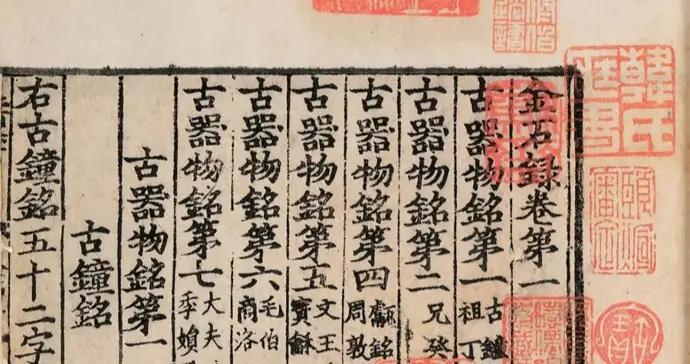 金石録卷第一
古器物銘第一 古鐘 祖丁
古器物銘第二 兄癸
古器物銘第四 甗銘 周敦
古器物銘第五 文王 寶龢
古器物銘第六 毛伯 商洛
古器物銘第七 大夫 季娟
古器物銘第一
古鐘銘
右古鐘銘五十二字
韓氏藏書